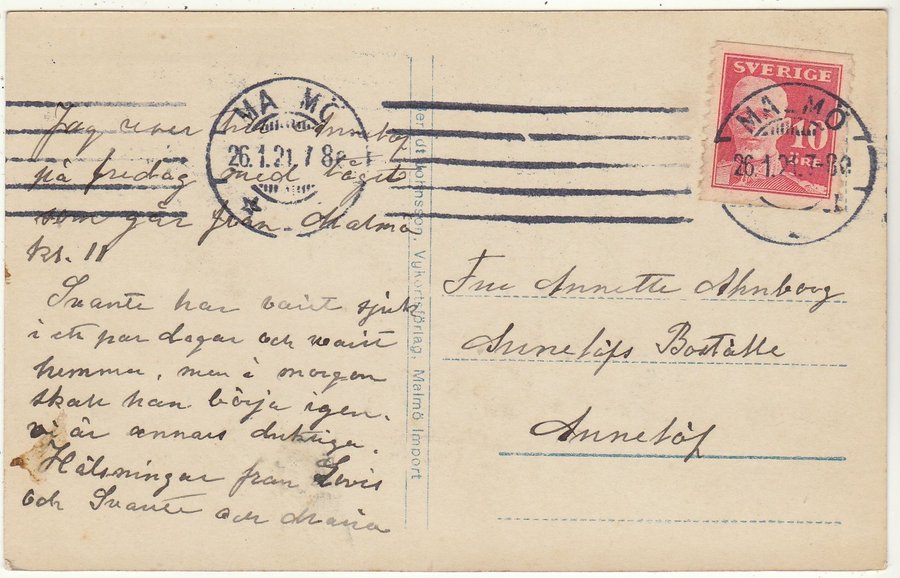 MA MÖ
26.1.21.
Jag
på fredag med tåget
som går från Malmö
kl. 11
Svante har varit sjuk
i ett par dagar och varit
hemma, men i morgon
skall han börja igen.
vi är annars duktiga.
Hälsningar från
och Svante och Maria
Vykortsförlag, Malmö Import
SVERIGE
10
ÖRE
MA MÖ
26.1.21.
Fru Annette Ahnborg
Annelöfs Boställe
Annelöf